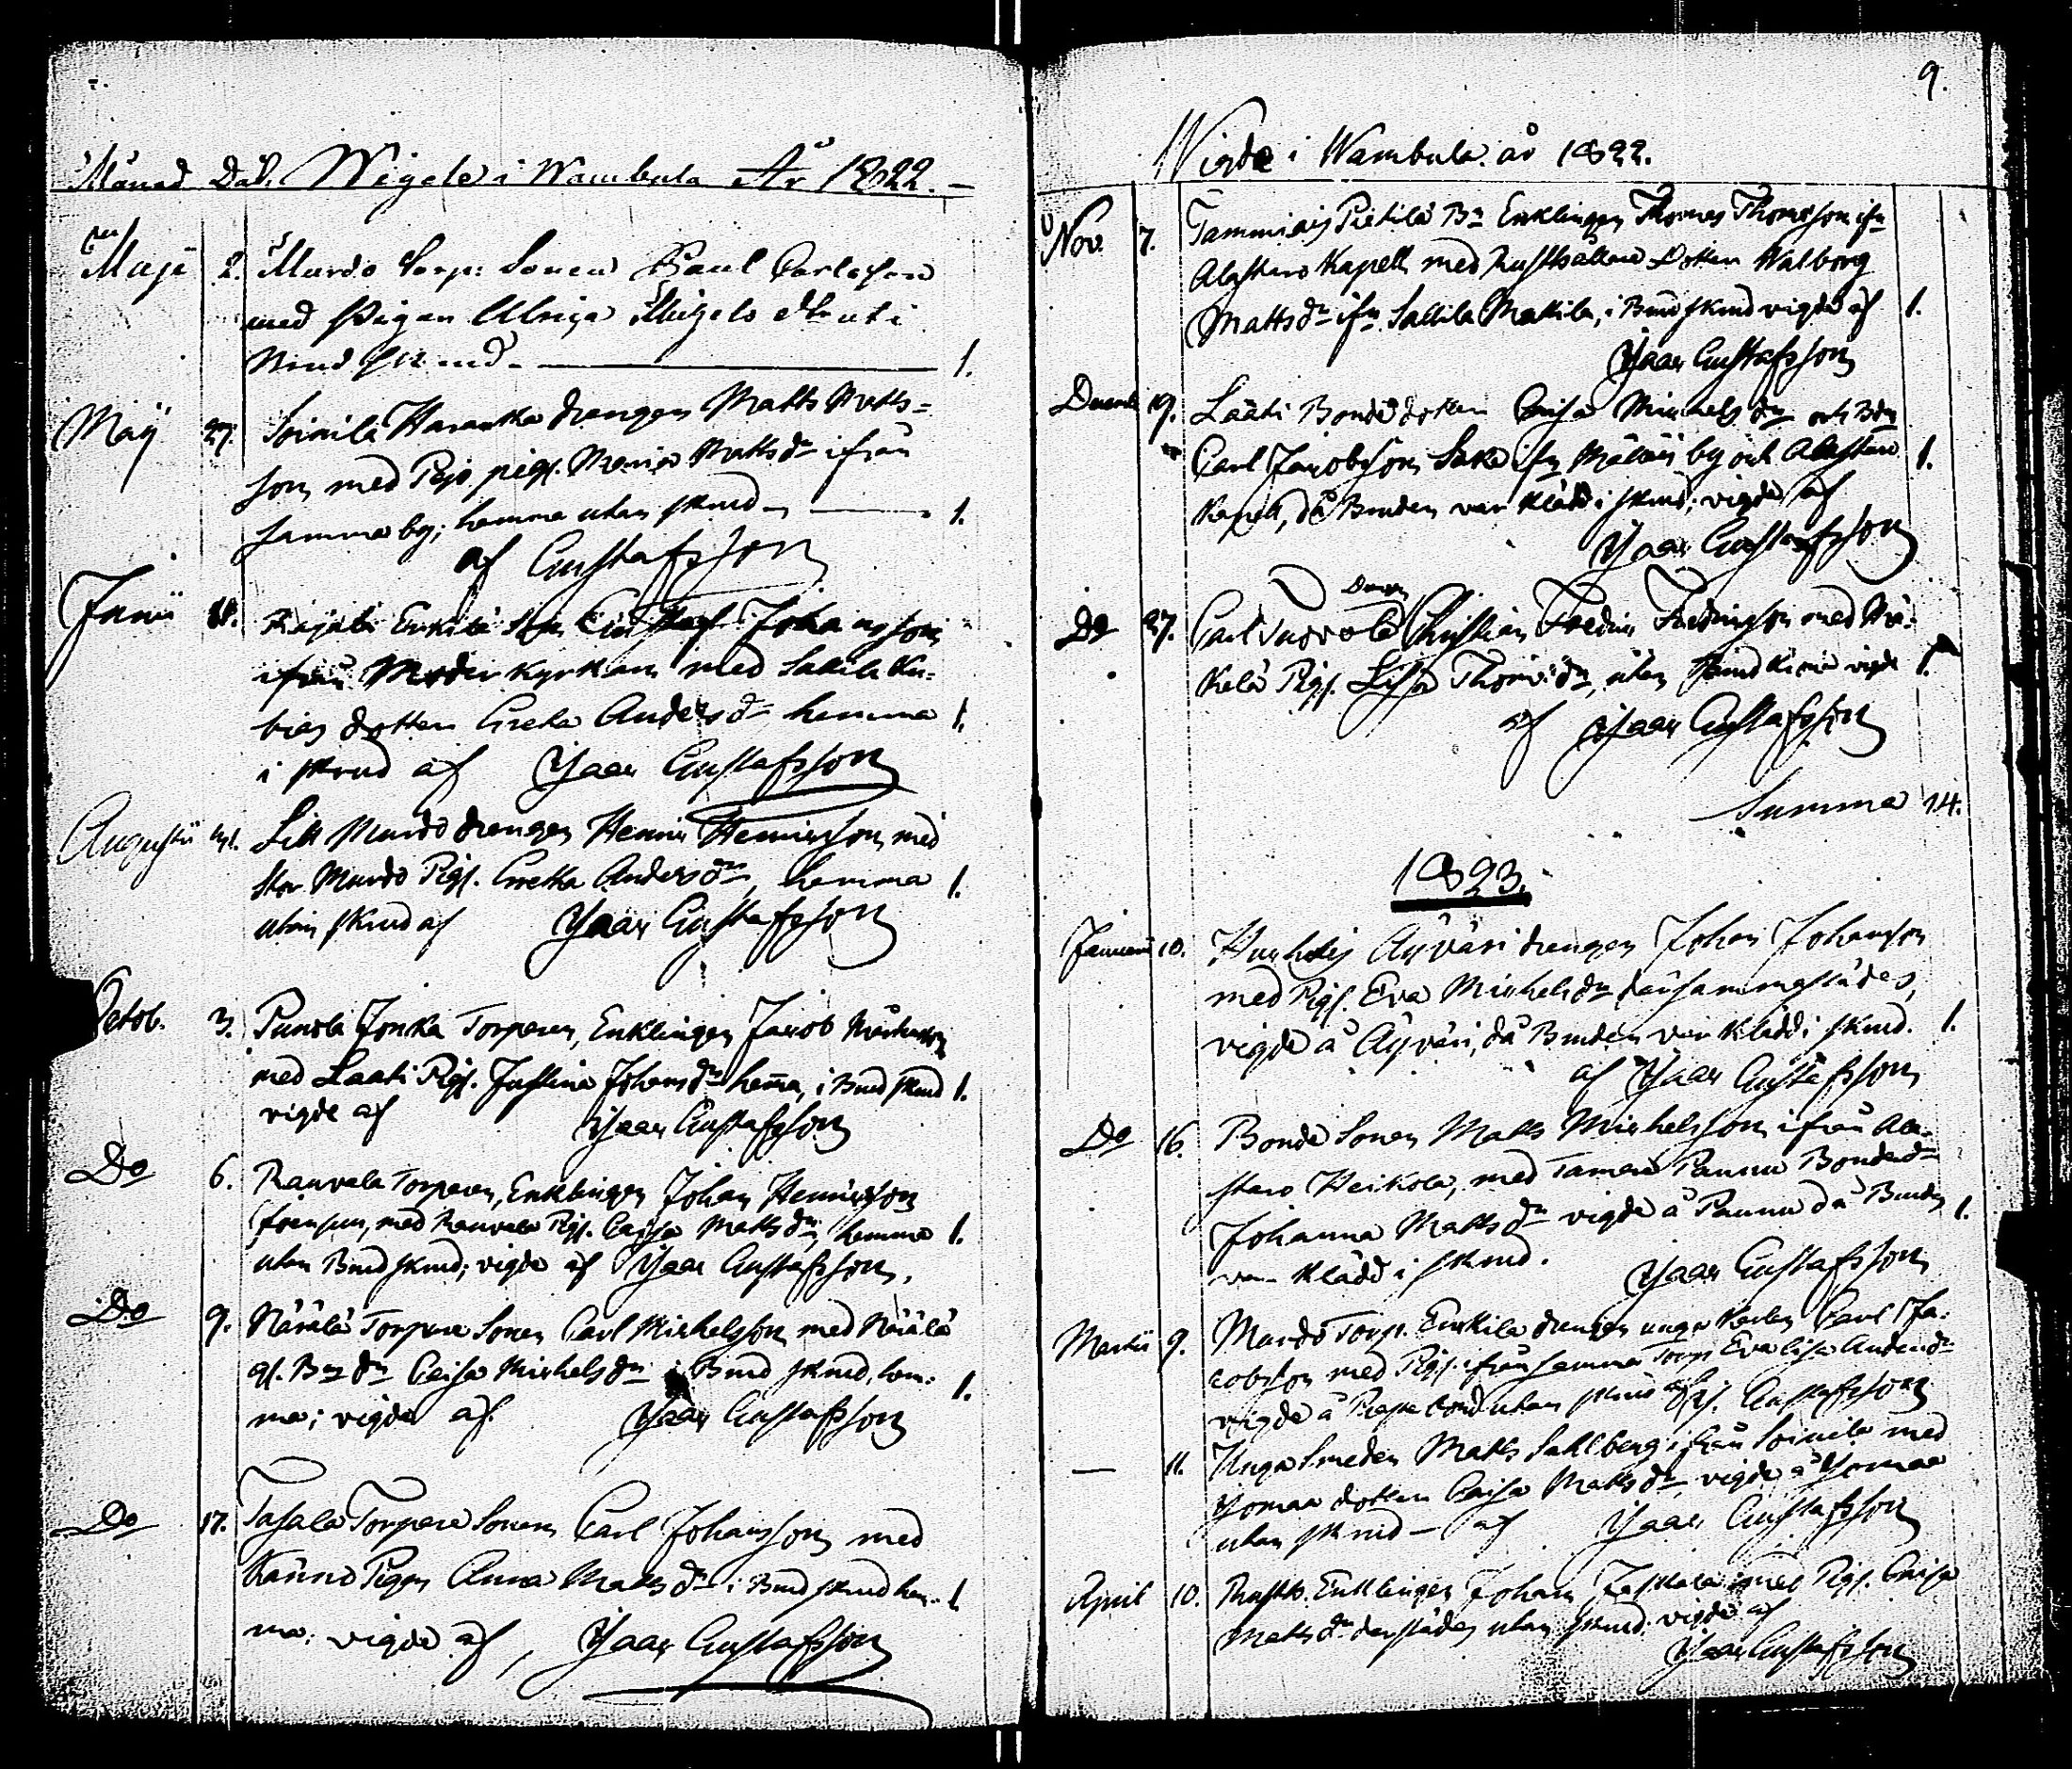 Månad Dat. Wigde i Wambula År 1822.
Maji 2. Murdo Torp: Sonen Paul Carlsson
med Pigan Ulrica Michels dr uti
Brud skrud 1.
Maij 27. Soinila Haranka drengen Matts Matts-
son med Pajo pig. Maria Matts dr ifrån
samma by; hemma utan skrud 1.
af Gustafsson
Junii Erkilä Johansson
ifrån Moder kyrkan med Sallila
dotter Greta Anders dr hemma 1.
i skrud af Isaac Gustafsson
Augustii Lill Murdo drengen Henric Henricsson med
Stor Murdo Pig. Greta Anders dr, hemma 1.
utan skrud af Isaac Gustafsson
Octob. 3. Punola Jonka Torparen, Enklingen Jacob
med Laati Pig. Justina Johans dr hema, i Brud skrud 1.
vigde af Isaac Gustafsson
Do 6. Rauvala Torparen, Enklingen Johan Henricsson
med Rauvala Pig. Caisa Matts dr, hemma 1.
utan Brud skrud; vigde af Isaac Gustafsson.
Do 9. Närälä Torpare Sonen Carl Michelsson med Närälä
Caisa Michels dr i Brud skrud, hem- 1.
ma; vigde af Isaac Gustafsson
Do 17. Tasala Torpare Sonen Carl Johansson med
Känno Pigan Anna Matts dr i Brud skrud hem- 1.
ma; vigde af, Isaac Gustafsson
9.
Wigde i Wambula år 1822.
Nov. 7. Tammiais Pietilä Bn Enklingen Thomas Thomsson ifn
Alastaro Kapell med Rusthållare Dotter Walborg
Matts dr ifn Sallila Mattila, i Brud skrud vigde af 1.
Isaac Gustafsson
Decemb 19. Laati Bonde dotter Caisa Michels dr och
Carl Jacobsson ifn by och Alastaro 1.
Kapell, då Bruden var klädd i skrud; vigde af
Isaac Gustafsson
Do 27. Carl Suovola Christian Fredric Fredricsson med
Pig. Lisa Thom. dr, utan skrud hema vigde 1.
af Isaac Gustafsson
Summa 14.
1823.
Januarii 10. Huhtis Äyväri drengen Johan Johansson
med Pig. Eva Michels dr därsammastädes,
vigde å Äyväri, då Bruden var klädd i skrud. 1.
af Isaac Gustafsson
Do 16. Bonde Sonen Matts Michelsson ifrån Ala-
staro Heikola, med Tamare Pannu Bonde dr
Johanna Matts dr vigde å Pannu då Bruden 1.
var klädd i skrud. Isaac Gustafsson
Martii 9. Murdo Torp. Erkilä drengen unga Karlen Carl Ja-
cobsson med Pig. ifrån samma Torp Eva Lisa Anders dr
vigde å utan skrud af Is. Gustafsson
— 11. Unga Smeden Matts Sahlberg ifrån Soinila med
Yomaa dotter Caisa Matts dr, vigde å Yomaa
utan skrud — af Isaac Gustafsson
April 10. Rusth. Enklingen Johan med Pig. Caisa
Matts dr derstädes utan skrud. vigde af
Isaac Gustafsson